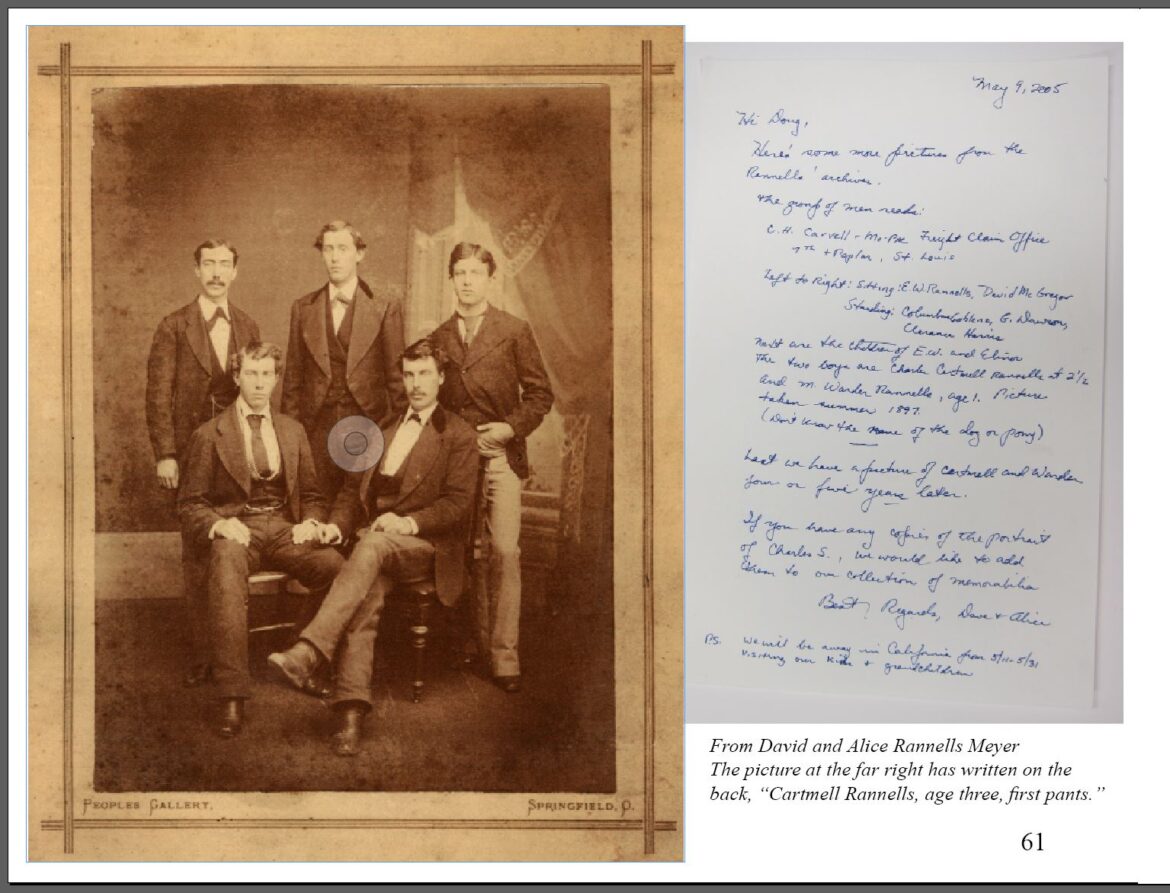 PEOPLES GALLERY,
SPRINGFIELD, O.
May 9, 2005
Hi Doug,
Here's some more pictures from the
Rannells' archives.
The group of men reads:
C. H. Carvell - Mo-Pac Freight Claim Office
7th + Poplar, St. Louis
Left to Right: Sitting: E.W. Rannells, David McGregor
Standing: Columbus, G. Dawson,
Clarence Harris
Next are the children of E.W. and Elinor
The two boys are Charles Cartmell Rannells at 2 1/2
and M. Warder Rannells, age 1. Picture
taken summer 1897.
(Don't know the name of the dog or pony)
Last we have a picture of Cartmell and Warder
four or five years later.
If you have any copies of the portrait
of Charles S., we would like to add
them to our collection of memorabilia
Best Regards, Dave + Alice
P.S. We will be away in California from 5/11-5/31
visiting our kids + grandchildren
From David and Alice Rannells Meyer
The picture at the far right has written on the
back, “Cartmell Rannells, age three, first pants.”
61